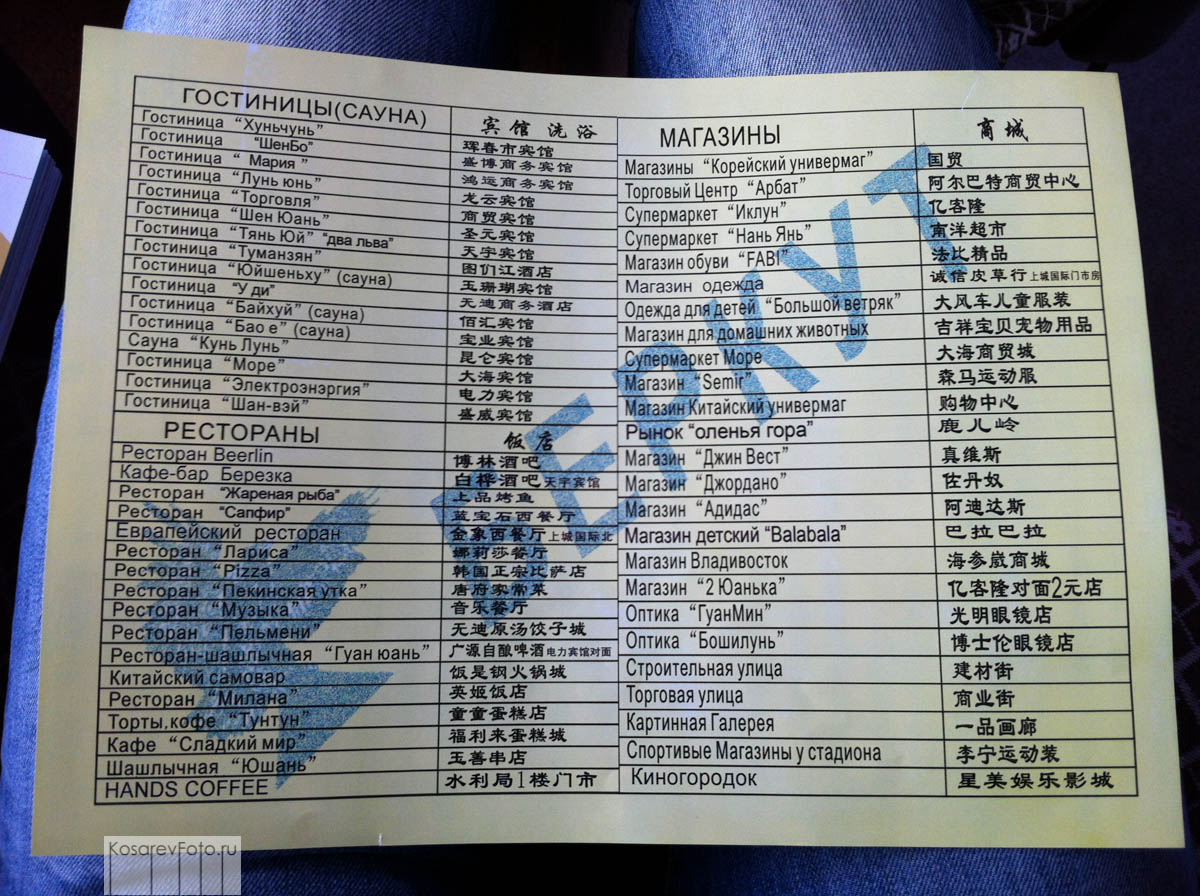 ГОСТИНИЦЫ(САУНА) 宾馆 洗浴
Гостиница “Хуньчунь” 珲春市宾馆
Гостиница “ШенБо” 盛博商务宾馆
Гостиница “ Мария ” 鸿运商务宾馆
Гостиница “Лунь юнь” 龙云宾馆
Гостиница “Торговля” 商贸宾馆
Гостиница “Шен Юань” 圣元宾馆
Гостиница “Тянь Юй” “два льва” 天宇宾馆
Гостиница “Туманзян” 图们江酒店
Гостиница “Юйшеньху” (сауна) 玉珊瑚宾馆
Гостиница “У ди” 无迪商务酒店
Гостиница “Байхуй” (сауна) 佰汇宾馆
Гостиница “Бао е” (сауна) 宝业宾馆
Сауна “Кунь Лунь” 昆仑宾馆
Гостиница “Море” 大海宾馆
Гостиница “Электроэнэргия” 电力宾馆
Гостиница “Шан-вэй” 盛威宾馆
РЕСТОРАНЫ 饭店
Ресторан Beerlin 博林酒吧
Кафе-бар Березка 白桦酒吧 天宇宾馆
Ресторан “Жареная рыба” 上品烤鱼
Ресторан “Сапфир” 蓝宝石西餐厅
Еврапейский ресторан 金象西餐厅 上城国际北
Ресторан “Лариса” 娜莉莎餐厅
Ресторан “Pizza” 韩国正宗比萨店
Ресторан “Пекинская утка” 唐府家常菜
Ресторан “Музыка” 音乐餐厅
Ресторан “Пельмени” 无迪原汤饺子城
Ресторан-шашлычная “Гуан юань” 广源自酿啤酒 电力宾馆对面
Китайский самовар 饭是钢火锅城
Ресторан “Милана” 英姬饭店
Торты,кофе “Тунтун” 童童蛋糕店
Кафе “Сладкий мир” 福利来蛋糕城
Шашлычная “Юшань” 玉善串店
HANDS COFFEE 水利局1楼门市
МАГАЗИНЫ 商城
Магазины “Корейский универмаг” 国贸
Торговый Центр “Арбат” 阿尔巴特商贸中心
Супермаркет “Иклун” 亿客隆
Супермаркет “Нань Янь” 南洋超市
Магазин обуви “FABI” 法比精品
Магазин одежда 诚信皮草行 上城国际门市房
Одежда для детей “Большой ветряк” 大风车儿童服装
Магазин для домашних животных 吉祥宝贝宠物用品
Супермаркет Море 大海商贸城
Магазин “Semir” 森马运动服
Магазин Китайский универмаг 购物中心
Рынок “оленья гора” 鹿儿岭
Магазин “Джин Вест” 真维斯
Магазин “Джордано” 佐丹奴
Магазин “Адидас” 阿迪达斯
Магазин детский “Balabala” 巴拉巴拉
Магазин Владивосток 海参崴商城
Магазин “2 Юанька” 亿客隆对面2元店
Оптика “ГуанМин” 光明眼镜店
Оптика “Бошилунь” 博士伦眼镜店
Строительная улица 建材街
Торговая улица 商业街
Картинная Галерея 一品画廊
Спортивые Магазины у стадиона 李宁运动装
Киногородок 星美娱乐影城
БЕРКУТ
KosarevFoto.ru